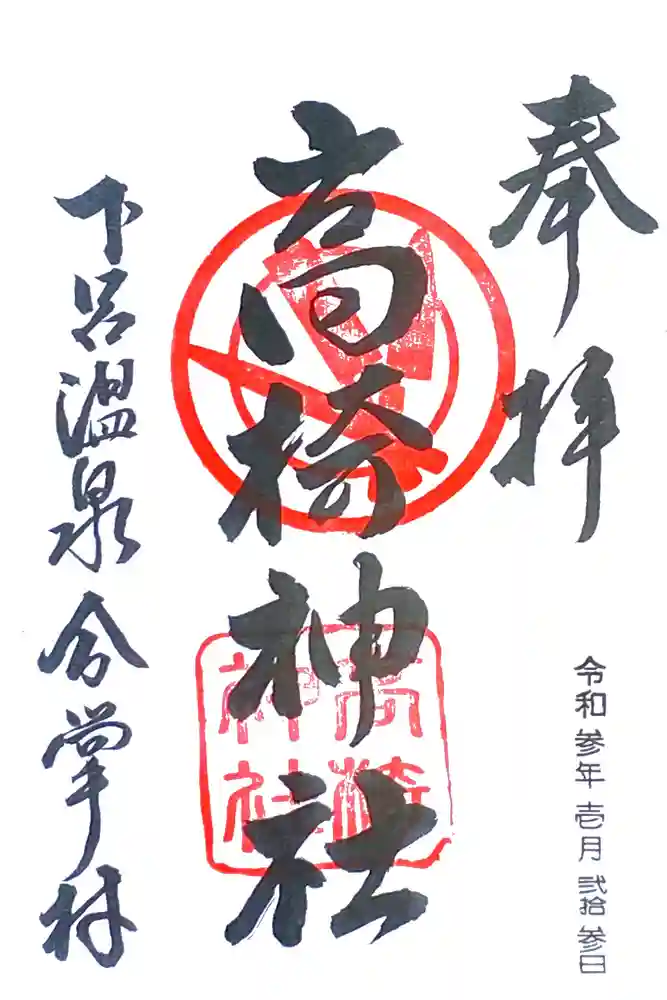 奉拝
令和参年壱月弐拾参日
高椅神社
高椅神社
下呂温泉合掌村